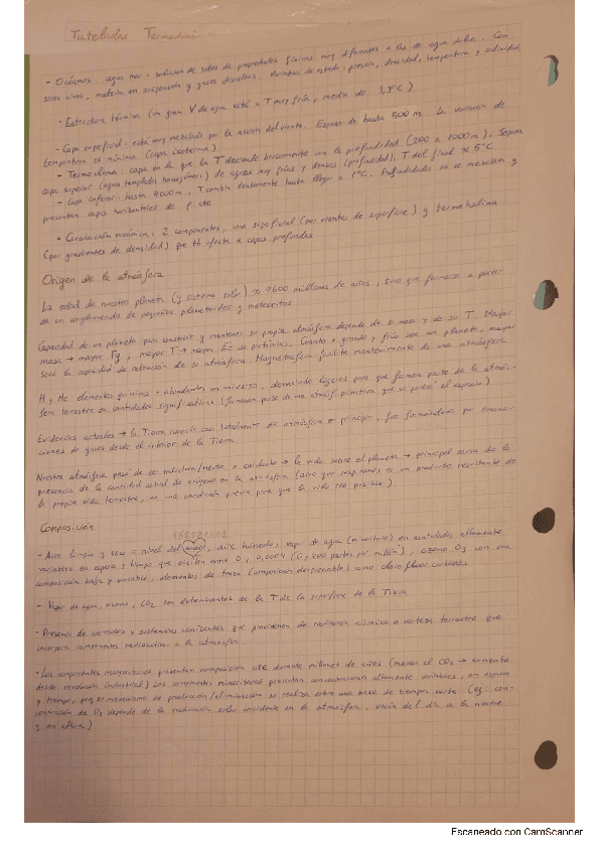 Tuteladas Termodin
- Océanos: agua mar = solución de sales de propiedades físicas muy diferentes a las de agua dulce. Con
seres vivos, materia en suspensión y gases disueltos. Variables de estado: presión, densidad, temperatura y salinidad
• Estructura térmica (un gran V de agua está a T muy fría, media de 3,8°C)
- Capa superficial: está muy mezclada por la acción del viento. Espesor de hasta 500 m. La variación de
temperatura es mínima (capa isoterma).
- Termoclina: capa en la que la T desciende bruscamente con la profundidad (200 a 1000 m). Separa
capa superior (agua templada homogénea) de aguas muy frías y densas (profundidad). T del final ≈ 5°C
- Capa inferior: hasta 4000 m, T cambia lentamente hasta llegar a 1°C. Profundidades no se mezclan y
presentan capas horizontales de ρ cte
• Circulación oceánica: 2 componentes, una superficial (por vientos de superficie) y termohalina
(por gradientes de densidad) que tb afecta a capas profundas
Origen de la atmósfera
La edad de nuestro planeta (y sistema solar) ≈ 4600 millones de años, tuvo que formarse a partir
de un conglomerado de pequeños planetoides y meteoritos.
Capacidad de un planeta para construir y mantener su propia atmósfera depende de su masa y de su T. Mayor
masa → mayor Fg, mayor T → mayor Ec de partículas. Cuanto + grande y frío sea un planeta, mayor
será la capacidad de retención de su atmósfera. Magnetosfera facilita mantenimiento de una atmósfera
H y He elementos químicos + abundantes en universo, demasiado ligeros para que formen parte de la atmós-
fera terrestre en cantidades significativas (formaron parte de una atmósf. primitiva que se perdió al espacio)
Evidencias actuales → la Tierra carecía casi totalmente de atmósfera al principio, fue formándose por emana-
ciones de gases desde el interior de la Tierra
Nuestra atmósfera pasó de ser reductora/neutra a oxidante → la vida sobre el planeta → principal causa de la
presencia de la cantidad actual de oxígeno en la atmósfera (aire que respiramos es un producto resultante de
la propia vida terrestre, no una condición previa para que la vida sea posible).
Composición
- Aire limpio y seco a nivel del mar, aire húmedo, vapor de agua (minoritario) en cantidades altamente
variables en espacio y tiempo que oscilan entre 0, 0,0004 (0, 400 partes por millón), ozono O3 con una
composición baja y variable, elementos de traza (proporción despreciable) como clorofluorocarbonos
- Vapor de agua, ozono, CO2 son determinantes de la T de la superficie de la Tierra
• Presencia de aerosoles y sustancias ionizantes que provienen de radiación cósmica o corteza terrestre que
incorpora componentes radiactivos a la atmósfera.
• Los componentes mayoritarios presentan composición cte durante millones de años (menos el CO2 → aumenta
desde revolución industrial) Los componentes minoritarios presentan concentraciones altamente variables, en espacio
y tiempo, pq su mecanismo de producción/eliminación se realiza sobre una base de tiempos corta (ej. con-
centración de O3 depende de la radiación solar incidente en la atmósfera, varía del día a la noche
y en altura)
Escaneado con CamScanner